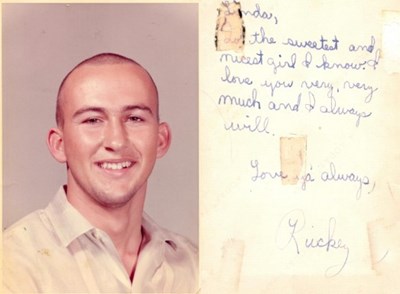 Linda,
To the sweetest and
nicest girl I know. I
love you very, very
much and I always
will.
Love ya always,
Rickey